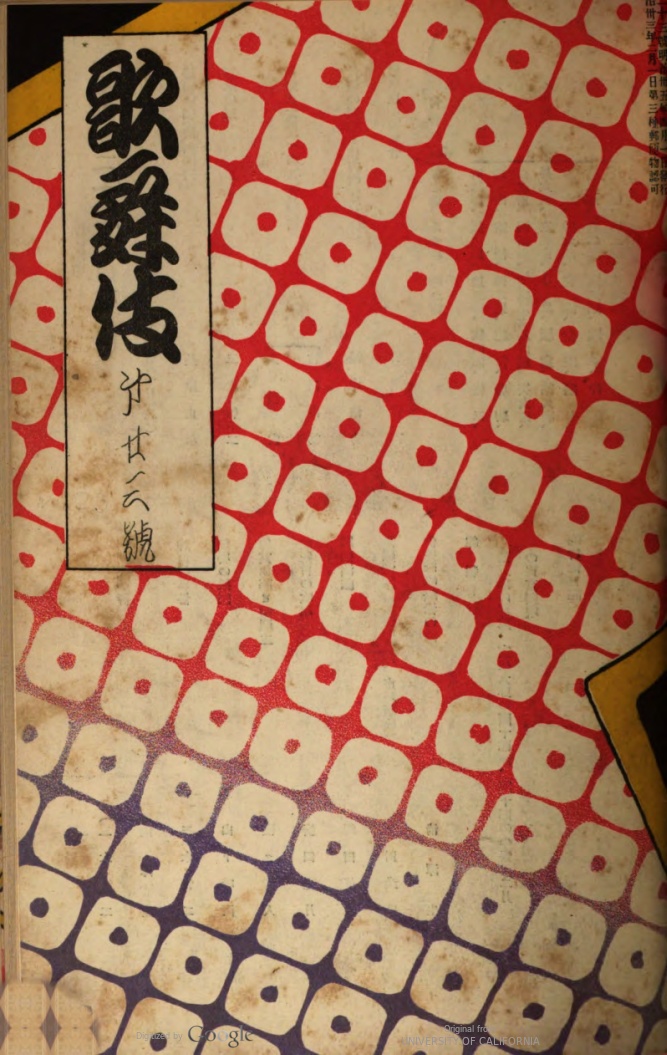 歌舞伎
第廿三號
卅三年二月一日第三種郵便物認可
Digitized by Google
Original from
UNIVERSITY OF CALIFORNIA